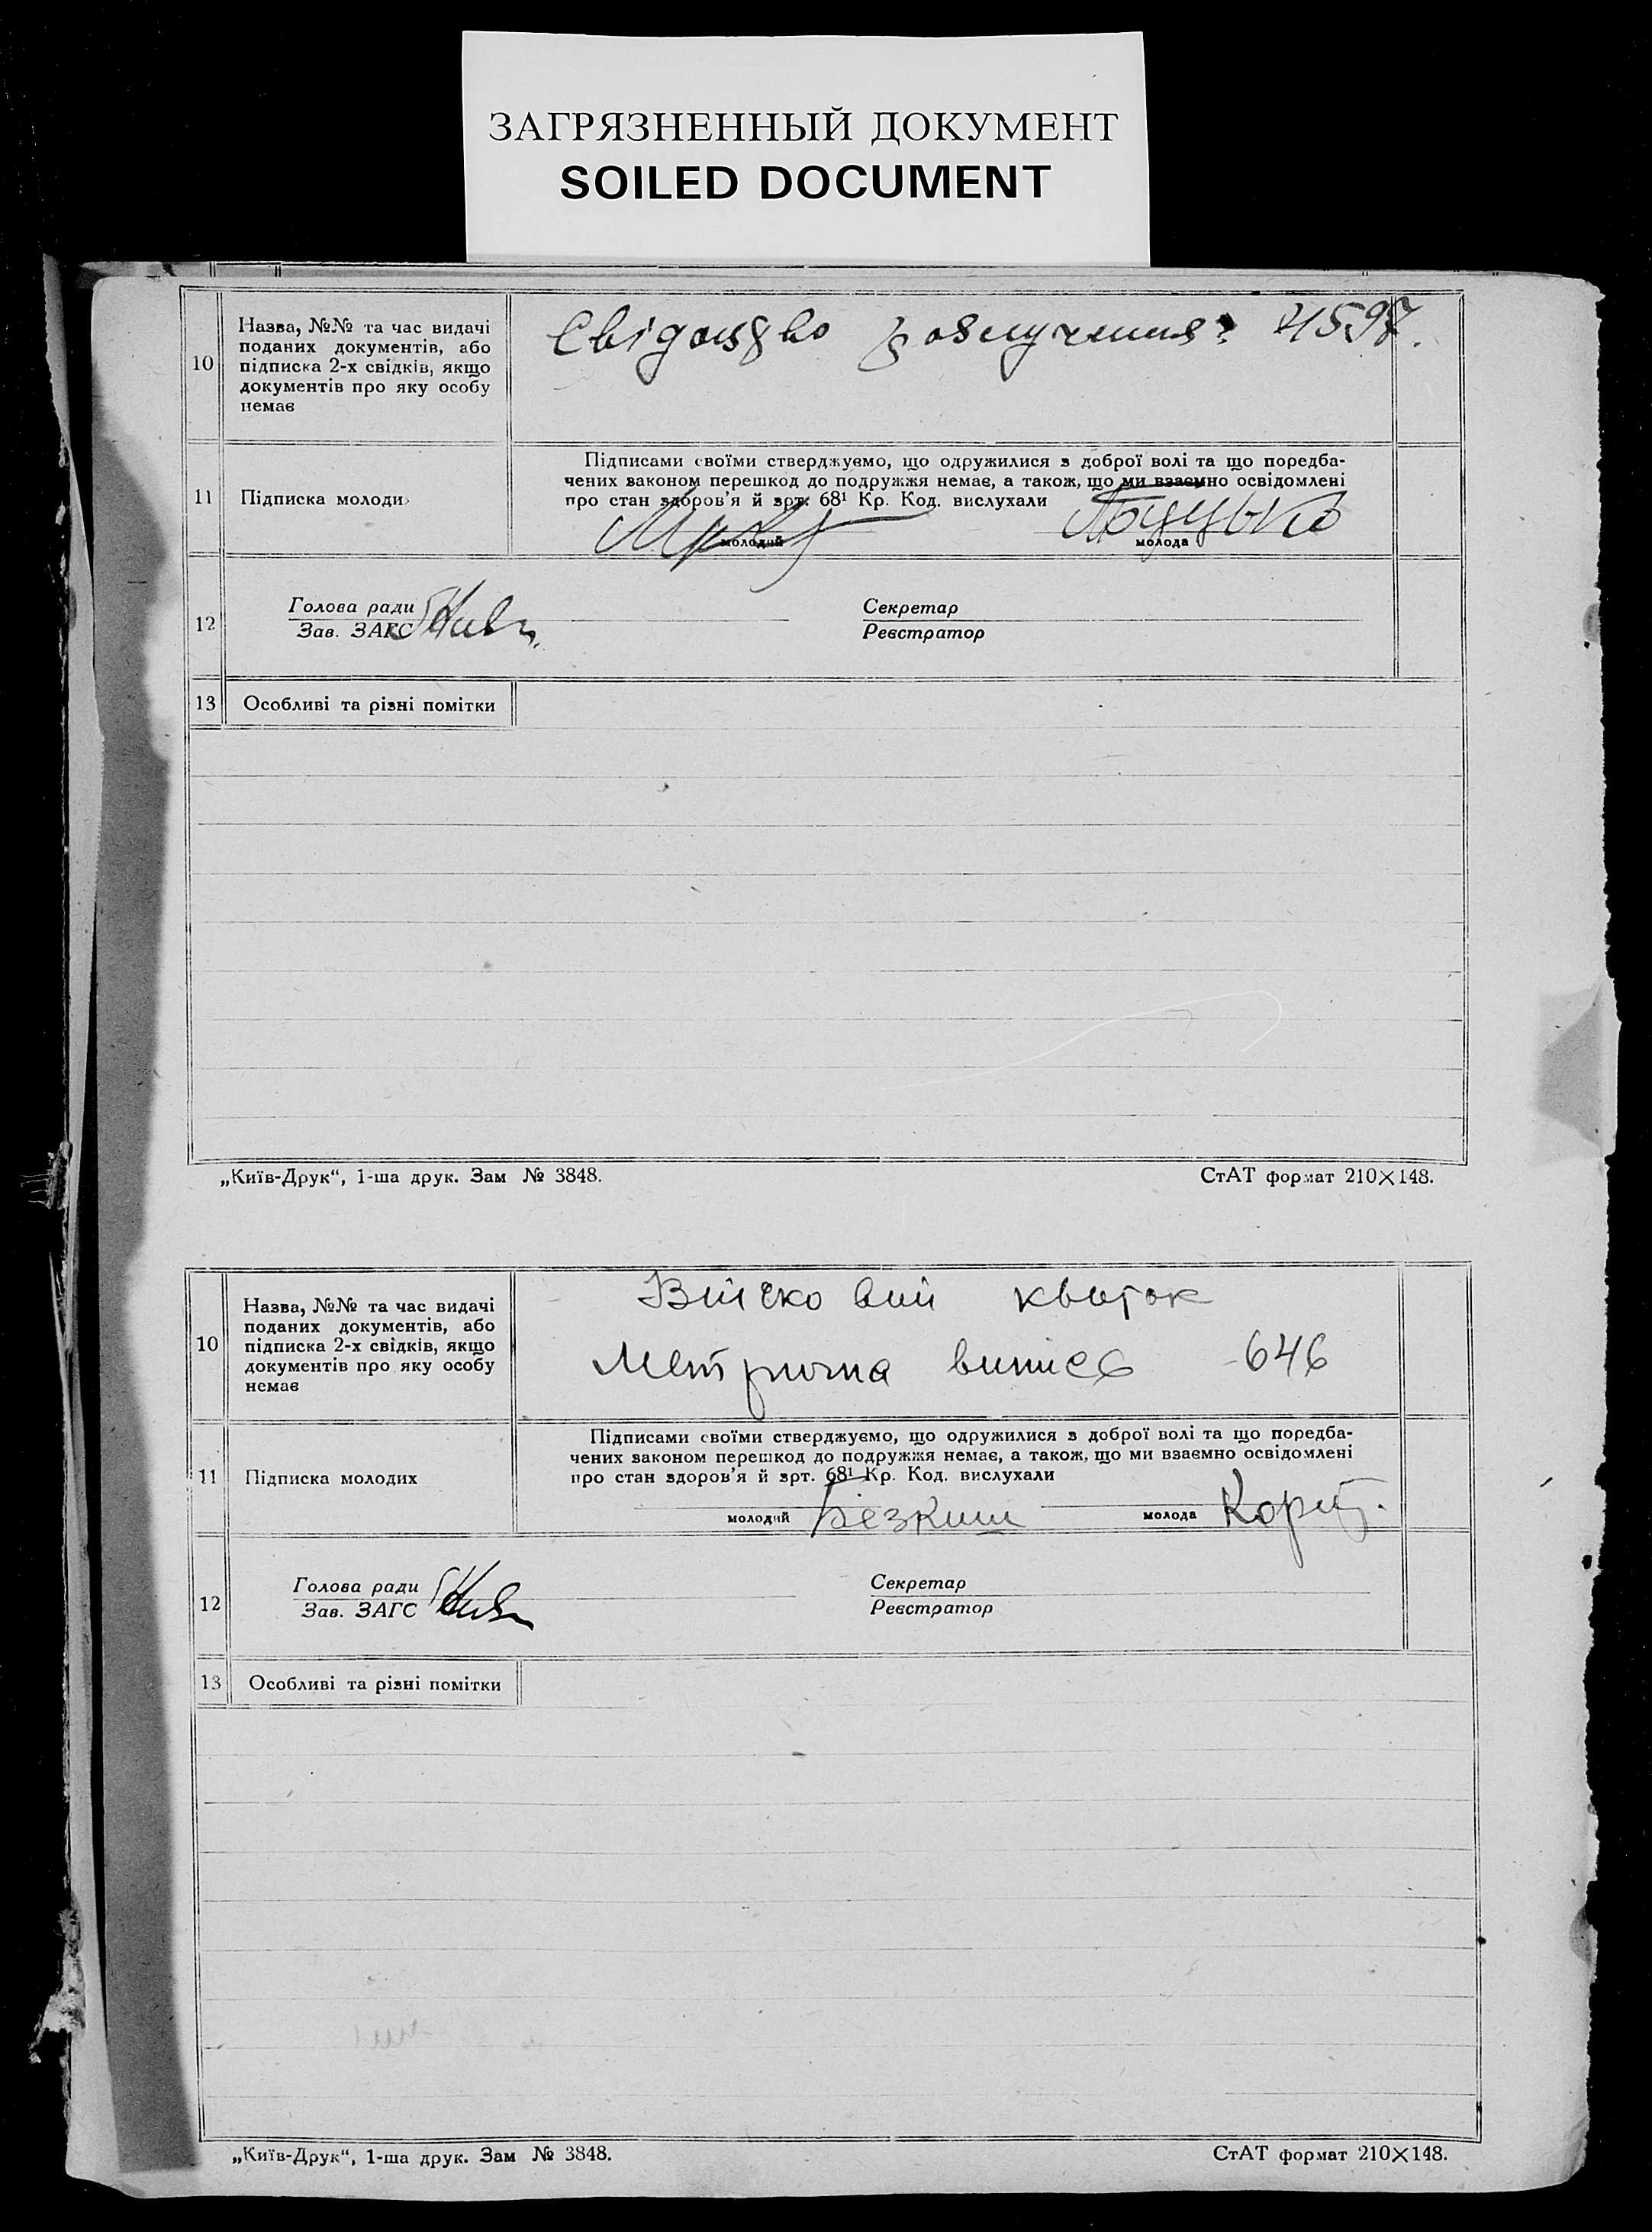 ЗАГРЯЗНЕННЫЙ ДОКУМЕНТ
SOILED DOCUMENT
10
Назва, №№ та час видачі
поданих документів, або
підписка 2-х свідків, якщо
документів про яку особу
немає
Свідоцтво розлучення 4597.
11
Підписка молоди
Підписами своїми стверджуємо, що одружилися з доброї волі та що поредба-
чених законом перешкод до подружжя немає, а також, що ми взаємно освідомлені
про стан здоров'я й арт. 68¹ Кр. Код. вислухали
молодий
молода
12
Голова ради
Зав. ЗАГС
Секретар
Реєстратор
13
Особливі та різні помітки
„Київ-Друк“, 1-ша друк. Зам № 3848.
СтАТ формат 210×148.
10
Назва, №№ та час видачі
поданих документів, або
підписка 2-х свідків, якщо
документів про яку особу
немає
Військовий квиток
Метрична випись 646
11
Підписка молодих
Підписами своїми стверджуємо, що одружилися з доброї волі та що поредба-
чених законом перешкод до подружжя немає, а також, що ми взаємно освідомлені
про стан здоров'я й арт. 68¹ Кр. Код. вислухали
молодий
молода
12
Голова ради
Зав. ЗАГС
Секретар
Реєстратор
13
Особливі та різні помітки
„Київ-Друк“, 1-ша друк. Зам № 3848.
СтАТ формат 210×148.